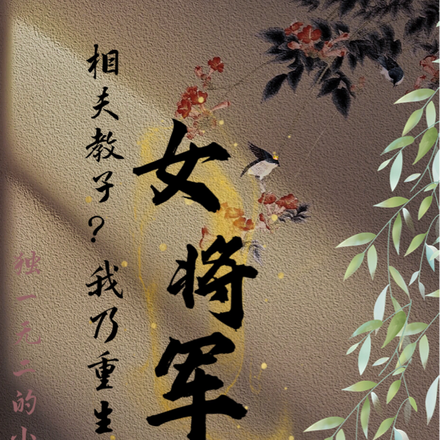 相夫教子？我乃重生
女将军
独一无二的小